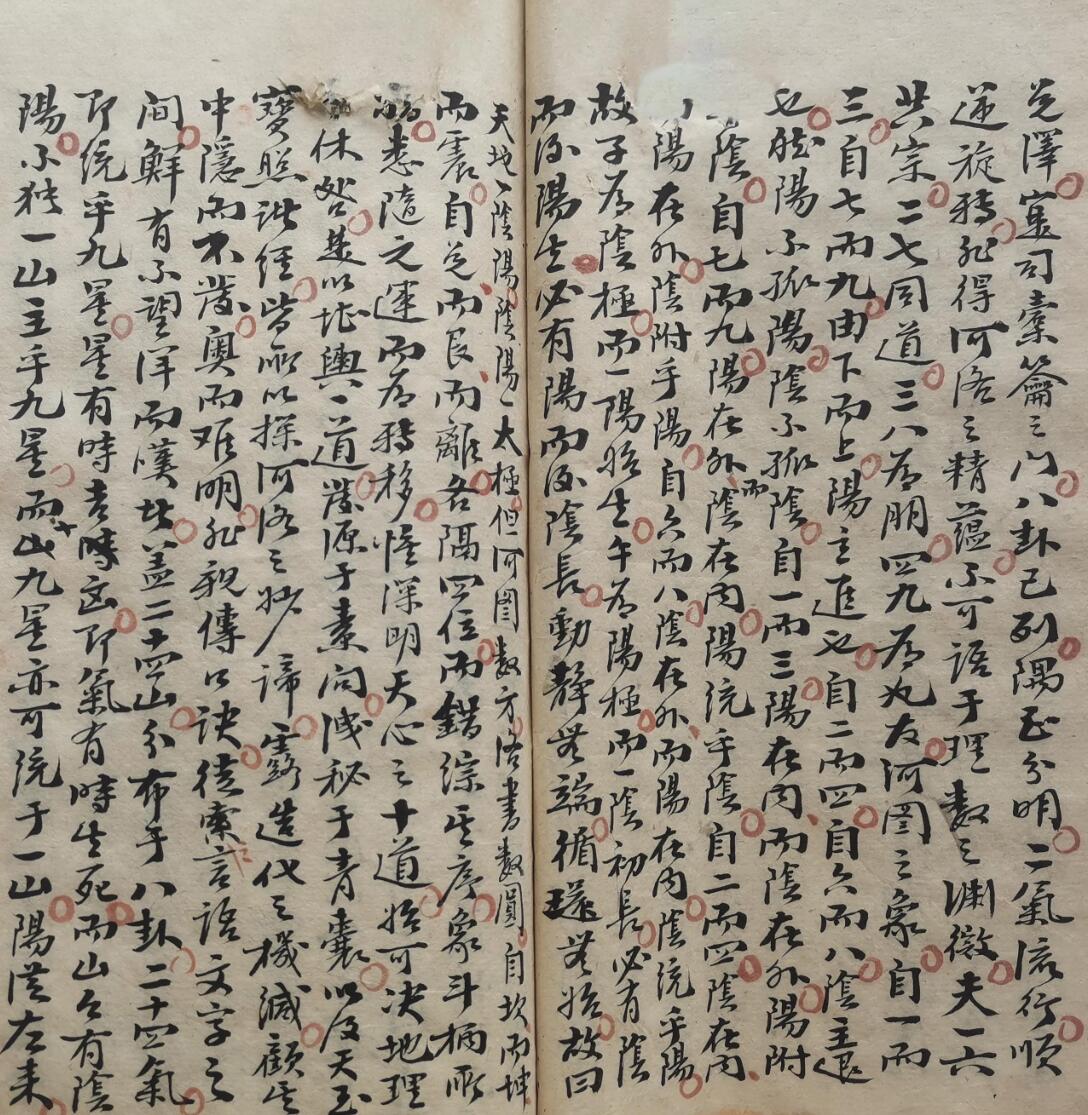 兌澤實司橐籥之门八卦已列隅正分明二氣流行順
逆旋轉非得河洛之精蘊不可語于理數之淵微夫一六
共宗二七同道三八为朋四九为友河图之象自一而
三自七而九由下而上陽主進也自二而四自六而八陰主退
也然陽不孤陽陰不孤陰自一而三陽在内而陰在外陽附
陰自七而九陽在外而陰在内陽统乎陰自二而四陰在内
陽在外陰附乎陽自六而八陰在外而陽在内陰统乎陽
故子为陰極而一陽始生午为陽極而一陰初長必有陰
而後陽生必有陽而後陰長動静無端循環無始故曰
天地一陰陽陰陽一太極但河图數方洛書數圓自坎而坤
而震自兌而艮而離各隔四位而錯综其序象斗柄所
悉隨之運而为轉移惟深明天心之十道始可决地理
休咎是以堪輿一道發源于素问洩秘于青囊以及天玉
寶照諸經皆所以探河洛之妙諦露造化之機緘顧其
中隱而不發奥而难明非親傳口诀徒索言语文字之
间鮮有不望洋而嘆者盖二十四山分布于八卦二十四氣
即统乎九星星有時吉時凶即氣有時生死而山亦有陰
陽不独一山主乎九星而山九星亦可统于一山陽從左来